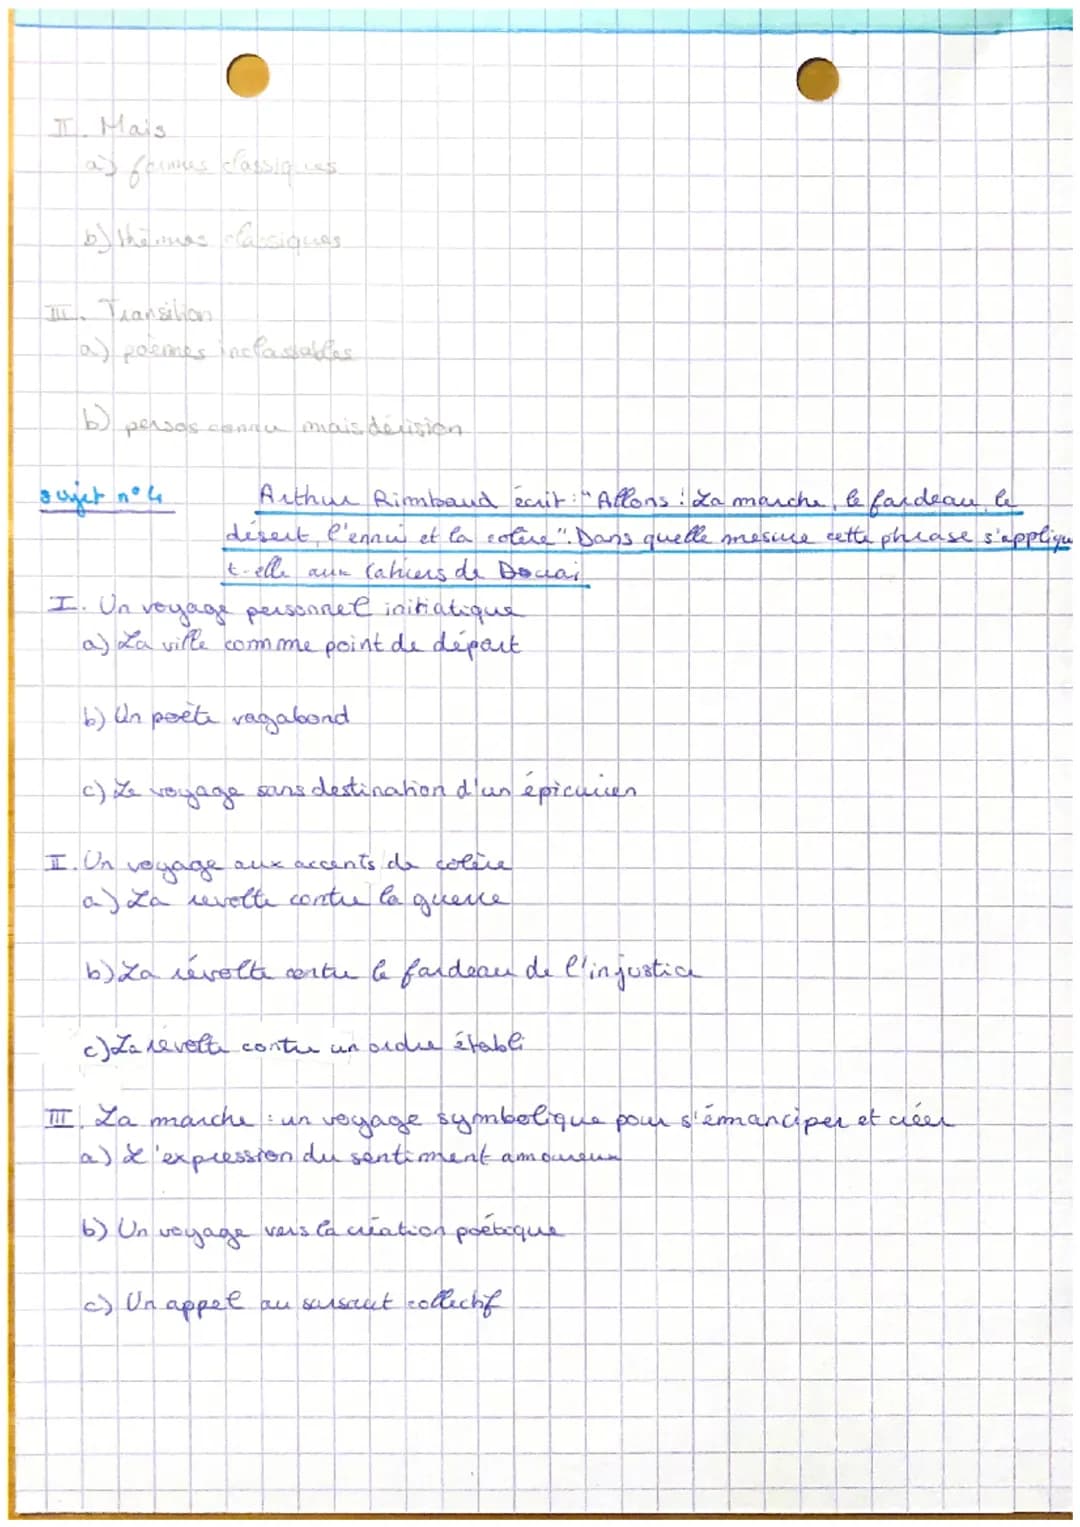 II. Mais
a) formes classiques
b) thèmes classiques
III. Transition
a) poèmes inclassables
b) persos connu mais dérision
sujet n°4 Arthur Rimbaud écrit : "Allons ! La marche, le fardeau, le
désert, l'ennui et la colère". Dans quelle mesure cette phrase s'appliqu
t-elle aux Cahiers de Douai
I. Un voyage personnel initiatique
a) La ville comme point de départ
b) Un poète vagabond
c) Le voyage sans destination d'un épicurien
II. Un voyage aux accents de colère
a) La revolte contre la guerre
b) La révolte contre le fardeau de l'injustice
c) La révolte contre un ordre établi
III. La marche : un voyage symbolique pour s'émanciper et créer
a) L'expression du sentiment amoureux
b) Un voyage vers la création poétique
c) Un appel au sursaut collectif